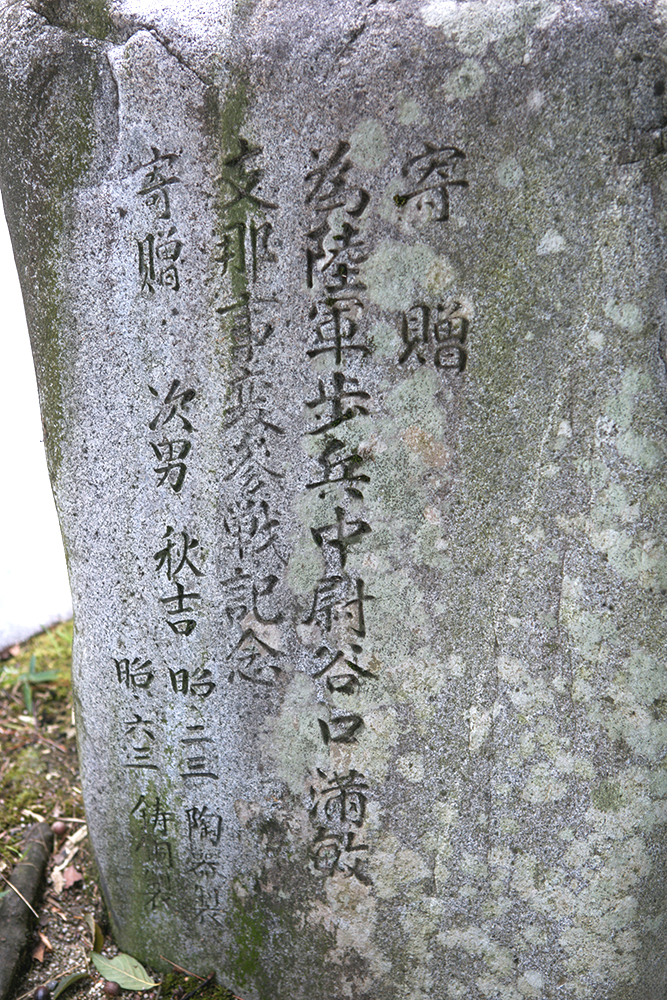 寄贈
為陸軍歩兵中尉谷口満敏
支那事変参戦記念
寄贈 次男 秋吉
昭二三 陶器製
昭六三 鋳銅製